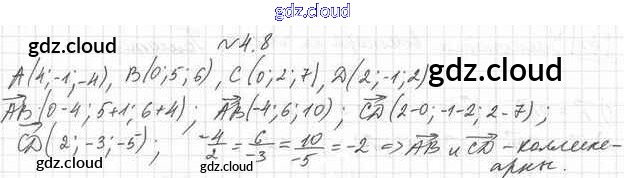 gdz.cloud
№4.8
gdz.cloud
A(4;-1;-4), B(0;5;6), C(0;2;7), D(2;-1;2)
gdz.cloud
AB(0-4; 5+1; 6+4); AB(-4; 6; 10); CD(2-0; -1-2; 2-7);
CD(2; -3; -5); -4/2 = 6/-3 = 10/-5 = -2 => AB и CD - коллине-
арны.
gdz.cloud
gdz.cloud